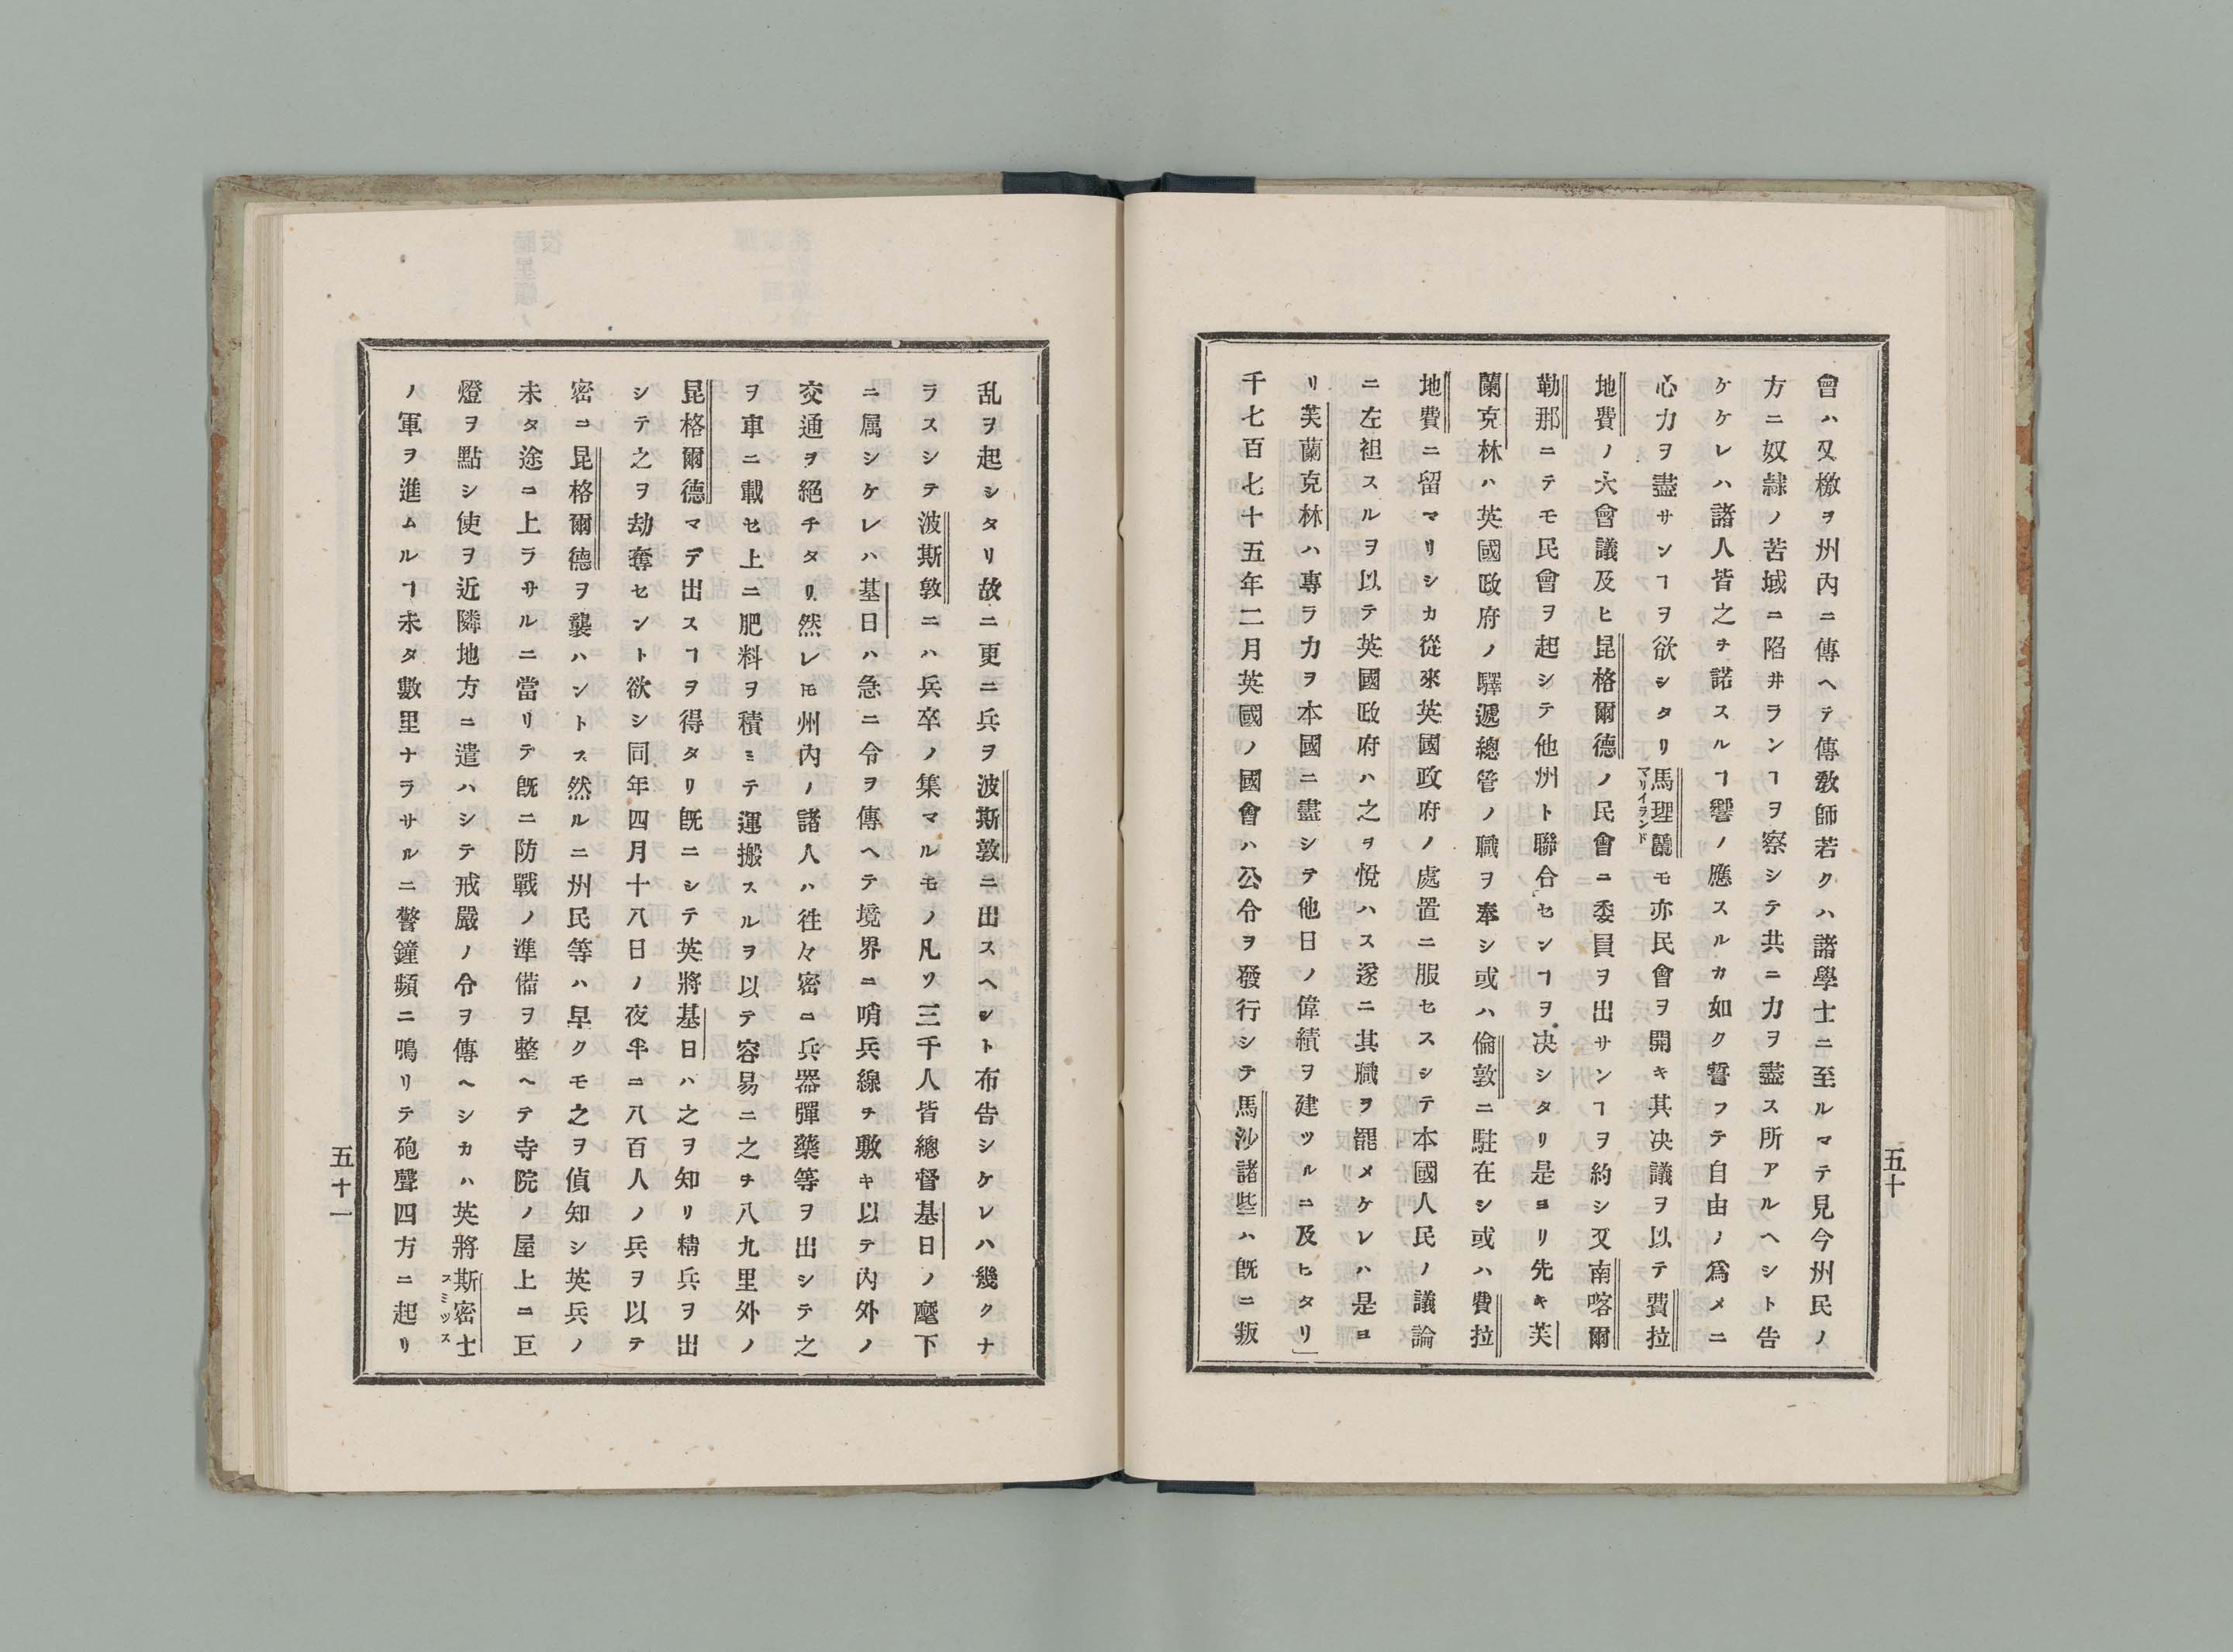 會ハ又檄ヲ州內ニ傳ヘテ傳敎師若クハ諸學士ニ至ルマテ見今州民ノ
方ニ奴隷ノ苦域ニ陷井ランヿヲ察シテ共ニ力ヲ盡ス所アルヘシト告
ケケレハ諸人皆之ヲ諾スルヿ響ノ應スルカ如ク誓フテ自由ノ爲メニ
心力ヲ盡サンヿヲ欲シタリ馬理蘭モ亦民會ヲ開キ其决議ヲ以テ費拉
マリイランド
地費ノ大會議及ヒ昆格爾德ノ民會ニ委員ヲ出サンヿヲ約シ又南喀爾
勒那ニテモ民會ヲ起シテ他州ト聯合センヿヲ决シタリ是ヨリ先キ芙
蘭克林ハ英國政府ノ驛遞總管ノ職ヲ奉シ或ハ倫敦ニ駐在シ或ハ費拉
地費ニ留マリシカ從來英國政府ノ處置ニ服セスシテ本國人民ノ議論
ニ左袒スルヲ以テ英國政府ハ之ヲ悅ハス遂ニ其職ヲ罷メケレハ是ヨ
リ芙蘭克林ハ專ラ力ヲ本國ニ盡シテ他日ノ偉績ヲ建ツルニ及ヒタリ」
千七百七十五年二月英國ノ國會ハ公令ヲ發行シテ馬沙諸些ハ旣ニ叛
五十
乱ヲ起シタリ故ニ更ニ兵ヲ波斯敦ニ出スヘシト布告シケレハ幾クナ
ラスシテ波斯敦ニハ兵卒ノ集マルモノ凡ソ三千人皆總督基日ノ麾下
ニ属シケレハ基日ハ急ニ令ヲ傳ヘテ境界ニ哨兵線ヲ敷キ以テ內外ノ
交通ヲ絕チタリ然レㇳモ州內ノ諸人ハ徃々密ニ兵器彈藥等ヲ出シテ之
ヲ車ニ載セ上ニ肥料ヲ積ミテ運搬スルヲ以テ容易ニ之ヲ八九里外ノ
昆格爾德マデ出スヿヲ得タリ旣ニシテ英將基日ハ之ヲ知リ精兵ヲ出
シテ之ヲ劫奪セント欲シ同年四月十八日ノ夜半ニ八百人ノ兵ヲ以テ
密ニ昆格爾德ヲ襲ハントス然ルニ州民等ハ早クモ之ヲ偵知シ英兵ノ
未タ途ニ上ラサルニ當リテ旣ニ防戰ノ準備ヲ整ヘテ寺院ノ屋上ニ巨
燈ヲ點シ使ヲ近隣地方ニ遣ハシテ戒嚴ノ令ヲ傳ヘシカハ英將斯密士
スミツス
ノ軍ヲ進ムルヿ未タ數里ナラサルニ警鐘頻ニ鳴リテ砲聲四方ニ起リ
五十一